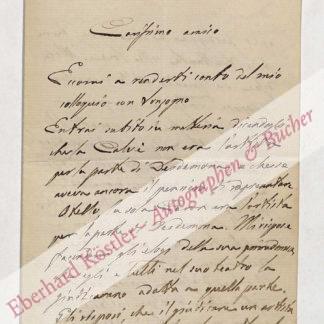 Carissimo amico
Eccomi a renderti conto del mio
colloquio con Sonzogno
Entrai subito in materia dicendogli
che la Calvé non era l'artista
per la parte di Desdemona e che se
aveva ancora il pensiero di rappresentare
Otello,
per la parte di Desdemona. Mi rispose
facendo
tutti nel suo teatro la
giudicarono adatta a quella parte.
Gli risposi che il giudicare un artista
Eberhard Köstler - Autographen & Bücher